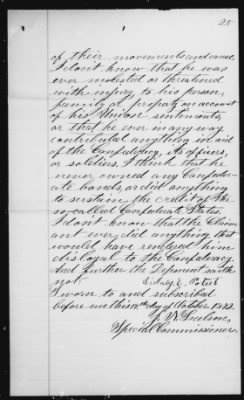 25
of their movements and cause.
I don't know that he was
ever molested or threatened
with injury to his person,
family or property on account
of his Union sentiments,
or that he ever in any way
contributed anything in aid
of the Confederacy, its officers,
or soldiers. I think that he
never owned any Confeder-
ate bonds, or did anything
to sustain the credit of the
so-called Confederate States.
I don't know that the Claim-
ant ever did anything that
would have rendered him
disloyal to the Confederacy.
And further the Deponent saith
not.
Sworn to and subscribed
before me this day of October 1873.
Special Commissioner.